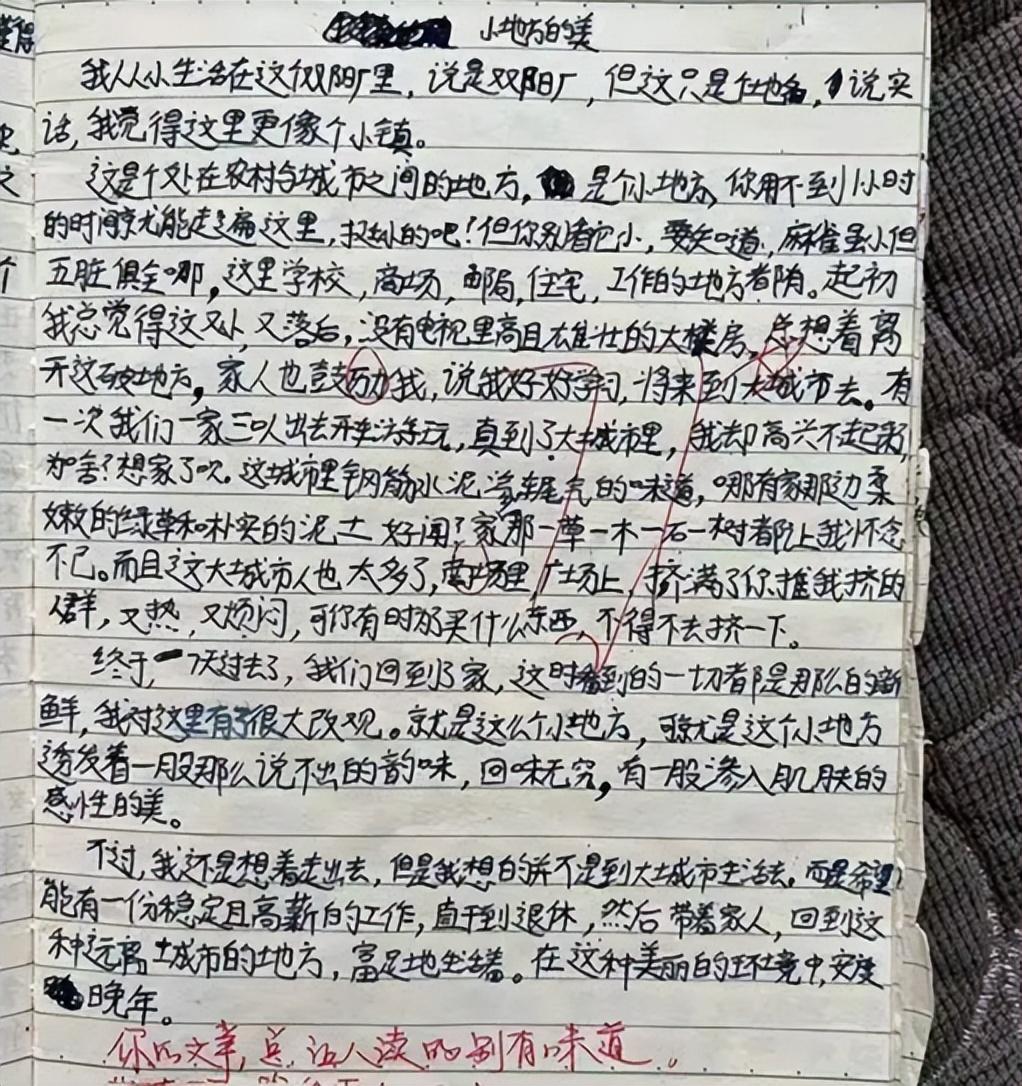 小地方的美
我从小生活在这个双阳厂里，说是双阳厂，但这只是住地名，说实
话，我觉得这里更像个小镇。
这是个处在农村与城市之间的地方，是个小地方，你用不到1小时
的时间就能走遍这里，挺小的吧！但你别看它小，要知道，麻雀虽小但
五脏俱全哪，这里学校，商场，邮局，住宅，工作的地方都有。起初
我总觉得这又小，又落后，没有电视里高且雄壮的大楼房，总想着离
开这破地方，家人也鼓励我，说我好好学习，将来到大城市去。有
一次我们一家三口人出去开车游玩，真到了大城市里，我却高兴不起来，
为啥？想家了呗。这城市里钢筋水泥汽车尾气的味道，哪有家那边柔
嫩的绿草和朴实的泥土好闻？家那一草一木一石一树都让我怀念
不已。而且这大城市人也太多了，商场里广场上，挤满了你推我挤的
人群，又热，又烦闷，可你有时都买什么东西，不得不去挤一下。
终于，7天过去了，我们回到了家，这时看到的一切都是那么的新
鲜，我对这里有了很大改观。就是这么个小地方，可就是这个小地方
透发着一股那么说不出的韵味，回味无穷，有一股渗入肌肤的
感性的美。
不过，我还是想着走出去，但是我想的并不是到大城市生活去。而是希望
能有一份稳定且高薪的工作，直干到退休，然后带着家人，回到这
种远离城市的地方，富足地生活着。在这种美丽的环境中，安度
晚年。
你的文章，总让人读的别有味道。